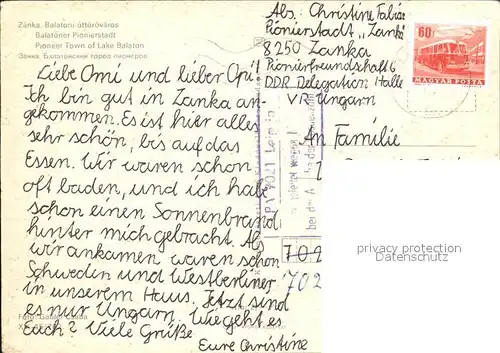 Zánka, Balatoni úttörőváros
Balatoner Pionierstadt
Pioneer Town of Lake Balaton
Занка. Балатонский город пионеров
Abs: Christine
Pionierstadt „Zanka"
8250 Zanka
Pionierfreundschaft 6
DDR Delegation Halle
VR Ungarn
60f
MAGYAR POSTA
Liebe Omi und lieber Opi!
Ich bin gut in Zanka an-
gekommen. Es ist hier alles
sehr schön, bis auf das
Essen. Wir waren schon
oft baden, und ich habe
schon einen Sonnenbrand
hinter mich gebracht. Als
wir ankamen waren schon
Schweden und Westberliner
in unserem Haus. Jetzt sind
es nur Ungarn. Wie geht es
Euch? Viele Grüße
Eure Christine
An Familie
privacy protection
Datenschutz
702